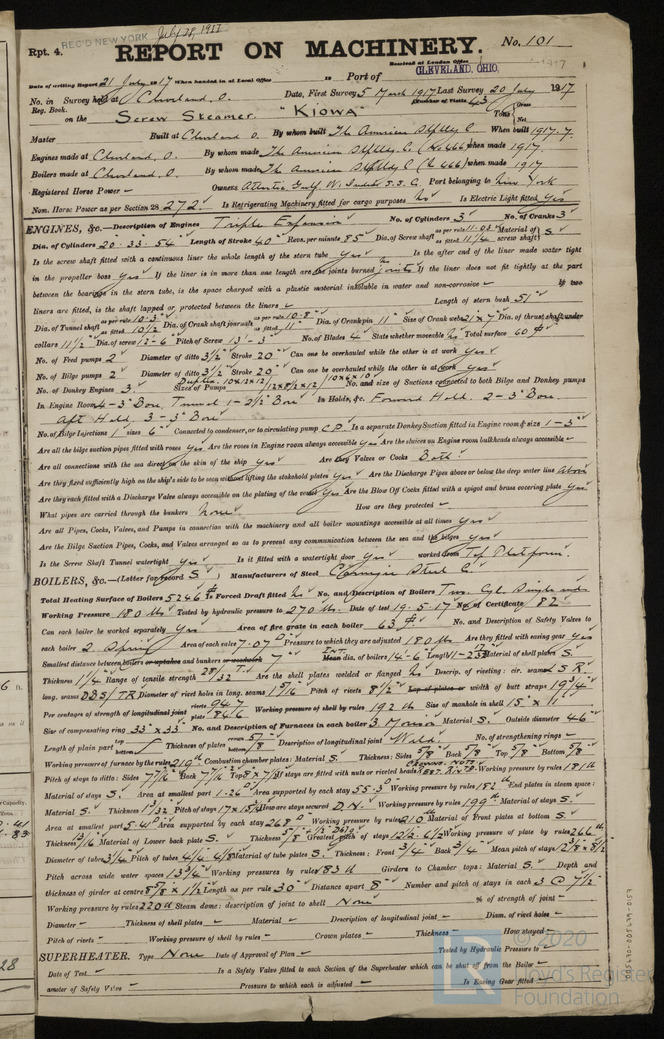 REC'D NEW YORK July 28, 1917
Rpt. 4. REPORT ON MACHINERY. No. 101
Received at London Office
Date of writing Report 21 July 1917 When handed in at Local Office Port of CLEVELAND, OHIO. 1917
No. in Survey held at Cleveland, O. Date, First Survey 5 March 1917 Last Survey 20 July 1917
Reg. Book. (Number of Visits 43
on the Screw Steamer "KIOWA" Tons Gross Net
Master Built at Cleveland O. By whom built The American Shpbldg C. When built 1917.7.
Engines made at Cleveland, O. By whom made The American Shpbldg C. (No 466) when made 1917.
Boilers made at Cleveland, O. By whom made The American Shpbldg C (466) when made 1917
Registered Horse Power Owners Atlantic Gulf W. Indies S.S. C. Port belonging to New York
Nom. Horse Power as per Section 28 272. Is Refrigerating Machinery fitted for cargo purposes No Is Electric Light fitted Yes
ENGINES, &c.—Description of Engines Triple Expansion No. of Cylinders 3 No. of Cranks 3
Dia. of Cylinders 20. 33. 54 Length of Stroke 40 Revs. per minute 85 Dia. of Screw shaft as per rule 11.03 as fitted 11 1/4 Material of screw shaft S
Is the screw shaft fitted with a continuous liner the whole length of the stern tube Yes Is the after end of the liner made water tight
in the propeller boss Yes If the liner is in more than one length are the joints burned If the liner does not fit tightly at the part
between the bearings in the stern tube, is the space charged with a plastic material insoluble in water and non-corrosive If two
liners are fitted, is the shaft lapped or protected between the liners Length of stern bush 51"
Dia. of Tunnel shaft as per rule 10.3 as fitted 10 1/2 Dia. of Crank shaft journals as per rule 10.8 as fitted 11" Dia. of Crank pin 11" Size of Crank webs 21 x 7 Dia. of thrust shaft under
collars 11 1/2 Dia. of screw 12-6 Pitch of Screw 13'-3" No. of Blades 4 State whether moveable No Total surface 60
No. of Feed pumps 2 Diameter of ditto 3 1/2 Stroke 20" Can one be overhauled while the other is at work Yes
No. of Bilge pumps 2 Diameter of ditto 3 1/2 Stroke 20" Can one be overhauled while the other is at work Yes
No. of Donkey Engines 3 Sizes of Pumps Duplex 10x12x12 12x8 1/2x12 10x6x10 No. and size of Suctions connected to both Bilge and Donkey pumps
In Engine Room 4-3" Bore, Tunnel 1-2 1/2" Bore In Holds, &c. Forward Hold, 2-3" Bore.
Aft Hold, 3-3" Bore
No. of Bilge Injections 1 sizes 6" Connected to condenser, or to circulating pump C.P. Is a separate Donkey Suction fitted in Engine room & size 1-3"
Are all the bilge suction pipes fitted with roses Yes Are the roses in Engine room always accessible Yes Are the sluices on Engine room bulkheads always accessible
Are all connections with the sea direct on the skin of the ship Yes Are they Valves or Cocks Both
Are they fixed sufficiently high on the ship's side to be seen without lifting the stokehold plates Yes Are the Discharge Pipes above or below the deep water line Above
Are they each fitted with a Discharge Valve always accessible on the plating of the vessel Yes Are the Blow Off Cocks fitted with a spigot and brass covering plate Yes
What pipes are carried through the bunkers None How are they protected
Are all Pipes, Cocks, Valves, and Pumps in connection with the machinery and all boiler mountings accessible at all times Yes
Are the Bilge Suction Pipes, Cocks, and Valves arranged so as to prevent any communication between the sea and the bilges Yes
Is the Screw Shaft Tunnel watertight Yes Is it fitted with a watertight door Yes worked from Top Platform.
BOILERS, &c.—(Letter for record S) Manufacturers of Steel Carnegie Steel C.
Total Heating Surface of Boilers 5246 Is Forced Draft fitted No No. and Description of Boilers Two Cyl. Single ended
Working Pressure 180 lbs Tested by hydraulic pressure to 270 lbs. Date of test 19.5.17 No. of Certificate 82
Can each boiler be worked separately Yes Area of fire grate in each boiler 63 No. and Description of Safety Valves to
each boiler 2 Spring Area of each valve 7.07 Pressure to which they are adjusted 180 lbs Are they fitted with easing gear Yes
Smallest distance between boilers or uptakes and bunkers or woodwork 7" INT. Mean dia. of boilers 14-6 Length 11-2 Material of shell plates S.
Thickness 1 1/4 Range of tensile strength 28/32 T. Are the shell plates welded or flanged No Descrip. of riveting: cir. seams L S R.
long. seams DBS/TR Diameter of rivet holes in long. seams 1 5/16 Pitch of rivets 8 1/2 Lap of plates or width of butt straps 19 3/4
Per centages of strength of longitudinal joint rivets 94.7 plate 84.6 Working pressure of shell by rules 192 lb Size of manhole in shell 15 x 11
Size of compensating ring 33" x 33" No. and Description of Furnaces in each boiler 3 Morison Material S. Outside diameter 46"
Length of plain part top bottom Thickness of plates crown bottom 5/8 Description of longitudinal joint Weld No. of strengthening rings
Working pressure of furnace by the rules 219 lb Combustion chamber plates: Material S. Thickness: Sides 5/8 Back 5/8 Top 5/8 Bottom 5/8
Pitch of stays to ditto: Sides 7 7/16 Back 7 7/16 Top 8 x 7 If stays are fitted with nuts or riveted heads Working pressure by rules 181 lb
Material of stays S. Area at smallest part 1.26 Area supported by each stay 55.3 Working pressure by rules 182 End plates in steam space:
Material S. Thickness 1 3/32 Pitch of stays 17 x 15 How are stays secured D.N. Working pressure by rules 199 Material of stays S.
Area at smallest part 5.41 Area supported by each stay 268 Working pressure by rules 210 Material of Front plates at bottom S.
Thickness Material of Lower back plate S. Thickness Greatest pitch of stays Working pressure of plate by rules 266
Diameter of tubes 3 1/4 Pitch of tubes 4 1/4 4 1/8 Material of tube plates S. Thickness: Front 3/4 Back 3/4 Mean pitch of stays 12 3/8 x 8 1/2
Pitch across wide water spaces 13 3/4 Working pressures by rules 183 lb Girders to Chamber tops: Material S. Depth and
thickness of girder at centre 8 5/8 x 1 1/2 Length as per rule 30 Distance apart 8" Number and pitch of stays in each 3 @ 7 1/2
Working pressure by rules 220 lb Steam dome: description of joint to shell None % of strength of joint
Diameter Thickness of shell plates Material Description of longitudinal joint Diam. of rivet holes
Pitch of rivets Working pressure of shell by rules Crown plates Thickness How stayed
SUPERHEATER. Type None Date of Approval of Plan Tested by Hydraulic Pressure to
Date of Test Is a Safety Valve fitted to each Section of the Superheater which can be shut off from the Boiler
ameter of Safety Valve Pressure to which each is adjusted Is Easing Gear fitted
© 2020
Lloyd's Register
Foundation